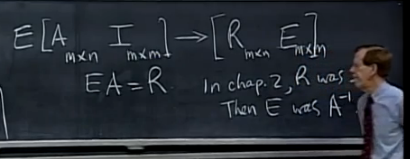 E[A m×n I m×m] → [R m×n E m×m]
EA = R. In chap. 2, R was
Then E was A⁻¹